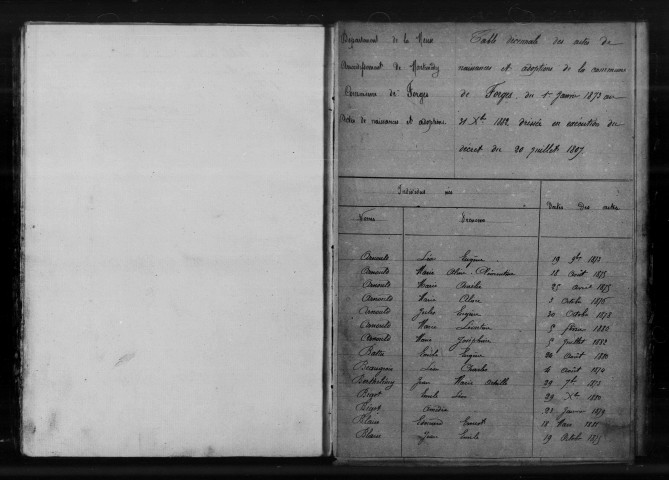 Département de la Meuse
Arrondissement de Montmédy
Commune de Forges
Actes de naissance et adoptions
Table décennale des actes de
naissances et adoptions de la commune
de Forges du 1er Janvier 1873 au
31 Xbre 1882 dressée en exécution du
décret du 20 juillet 1807
Individus nés
Dates des actes
Noms
Prénoms
Arnould Léon Eugène 19 9bre 1873
Arnould Marie 18 août 1875
Arnould Marie Amélie 25 avril 1875
Arnould Marie Aline 3 Octobre 1876
Arnould Jules Eugène 20 Octobre 1878
Arnould Marie Léontine 5 février 1880
Arnould Marie Joséphine 5 juillet 1882
Emile Eugène 20 août 1880
Léon Charles 4 août 1874
Jean Marie Achille 29 7bre 1873
Bigot Emile Léon 29 Xbre 1880
Bigot 21 Janvier 1879
Blaise Edouard Ernest 18 Mars 1881
Blaise Jean Emile 19 Octobre 1875